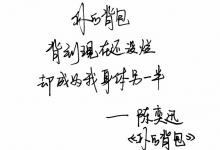 孙的背包
背到现在还没烂
却成为我身体另一半
——陈奕迅
《孙的背包》